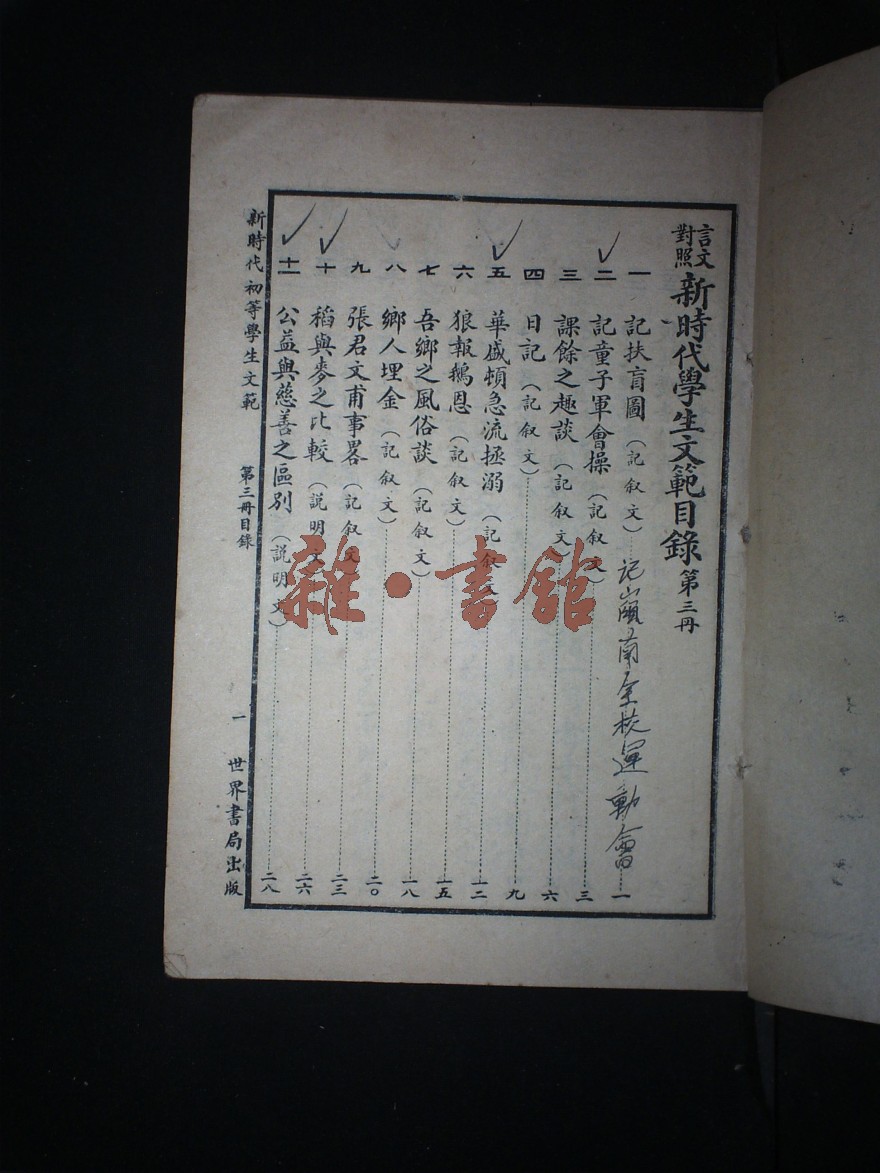 言文對照 新時代學生文範目錄 第三冊
一 記扶盲圖（記叙文） 一
記 南全校運動會
二 記童子軍會操（記叙文） 三
三 課餘之趣談（記叙文） 六
四 日記（記叙文） 九
五 華盛頓急流拯溺（記叙文 一二
六 狼報鵝恩（記叙文） 一五
七 吾鄉之風俗談（記叙文） 一八
八 鄉人埋金（記叙文） 二〇
九 張君文甫事畧（記叙文 二三
十 稻與麥之比較（説明文） 二六
十一 公益與慈善之區別（説明文） 二八
新時代初等學生文範 第三冊目錄 一 世界書局出版
雜·書館